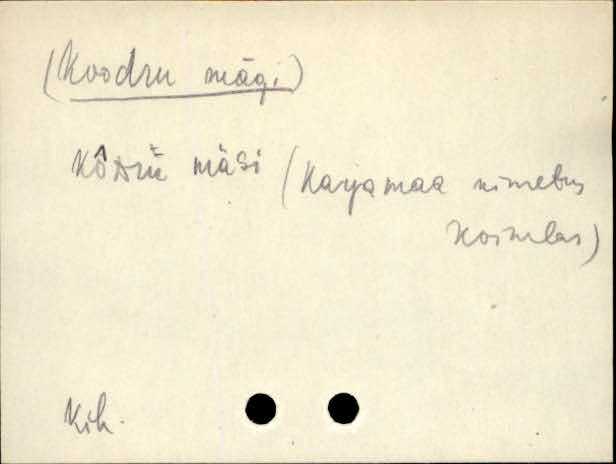 (Koodru mägi)
Kôdrŭ mäGi (Karjamaa nimetus
Koimlas)
Kih.